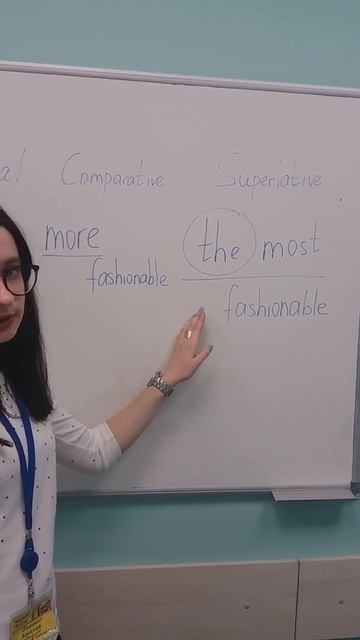 al Comparative Superlative
more the most
fashionable
fashionable